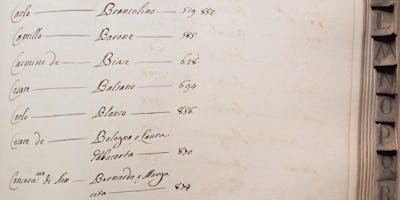 Carlo — Brancolino — 519. 850.
Camillo — Barone — 585.
Carmino de — Biase — 628.
Cesare — Balsano — 694
Carlo — Blanco — 856.
Cesare de — Bologna e Laura
Tabacorta — 830
de San — Bernardo e Marga
rita — 834
L
M
N
O
P